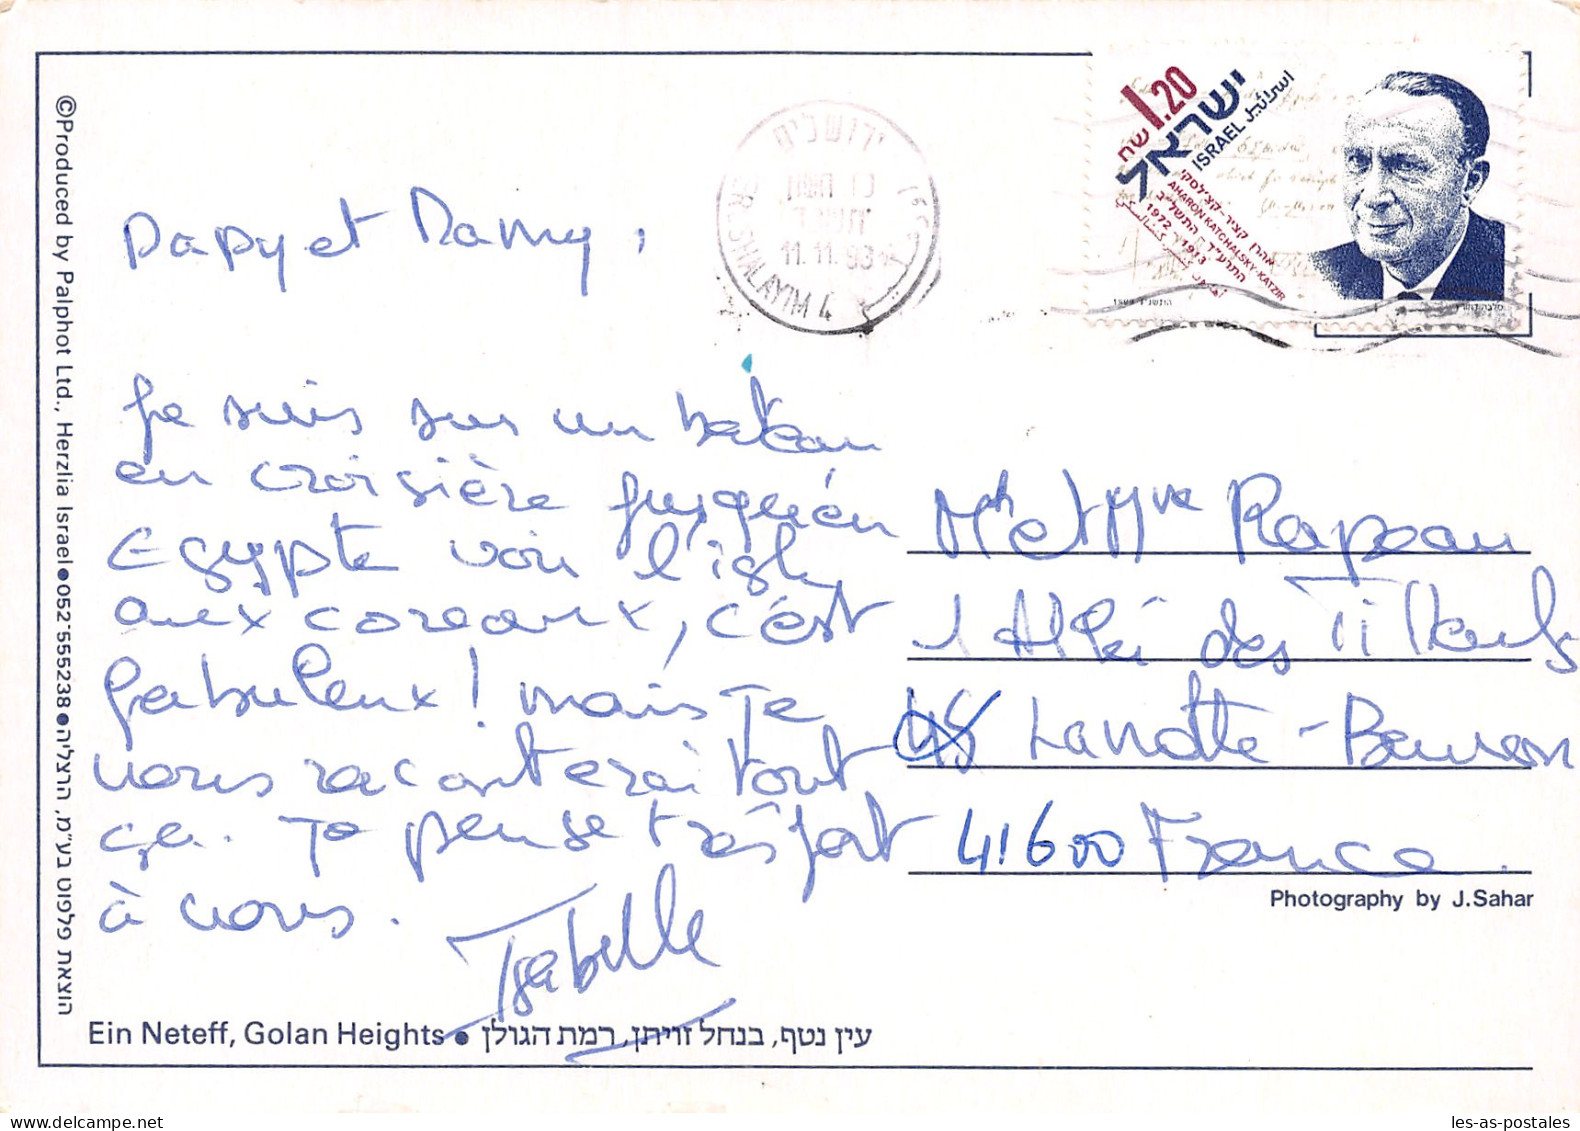 ©Produced by Palphot Ltd., Herzlia Israel•052-555238•הוצאת פלפוט בע״מ, הרצליה
1.20 שח
ישראל
ISRAEL اسرائيل
אהרן קציר-קצ'לסקי
AHARON KATCHALSKY-KATZIR
התרע״ד - התשל״ב
1972 - 1913
ירושלים
11.11.93
JERUSHALAYIM 4
Papy et Mamy,
Je suis sur un bateau
en croisière jusqu'en
Egypte voir l'isly
aux coreaux, c'est
fabuleux! mais Je
vous raconterai tout
ça. Je pense très fort
à vous.
Isabelle
Mr et Mme Rapeau
1 Allé des Tilleuls
45 Lamotte-Beuvron
41600 France
Photography by J.Sahar
Ein Neteff, Golan Heights • עין נטף, בנחל זוויתן, רמת הגולן
les-as-postales